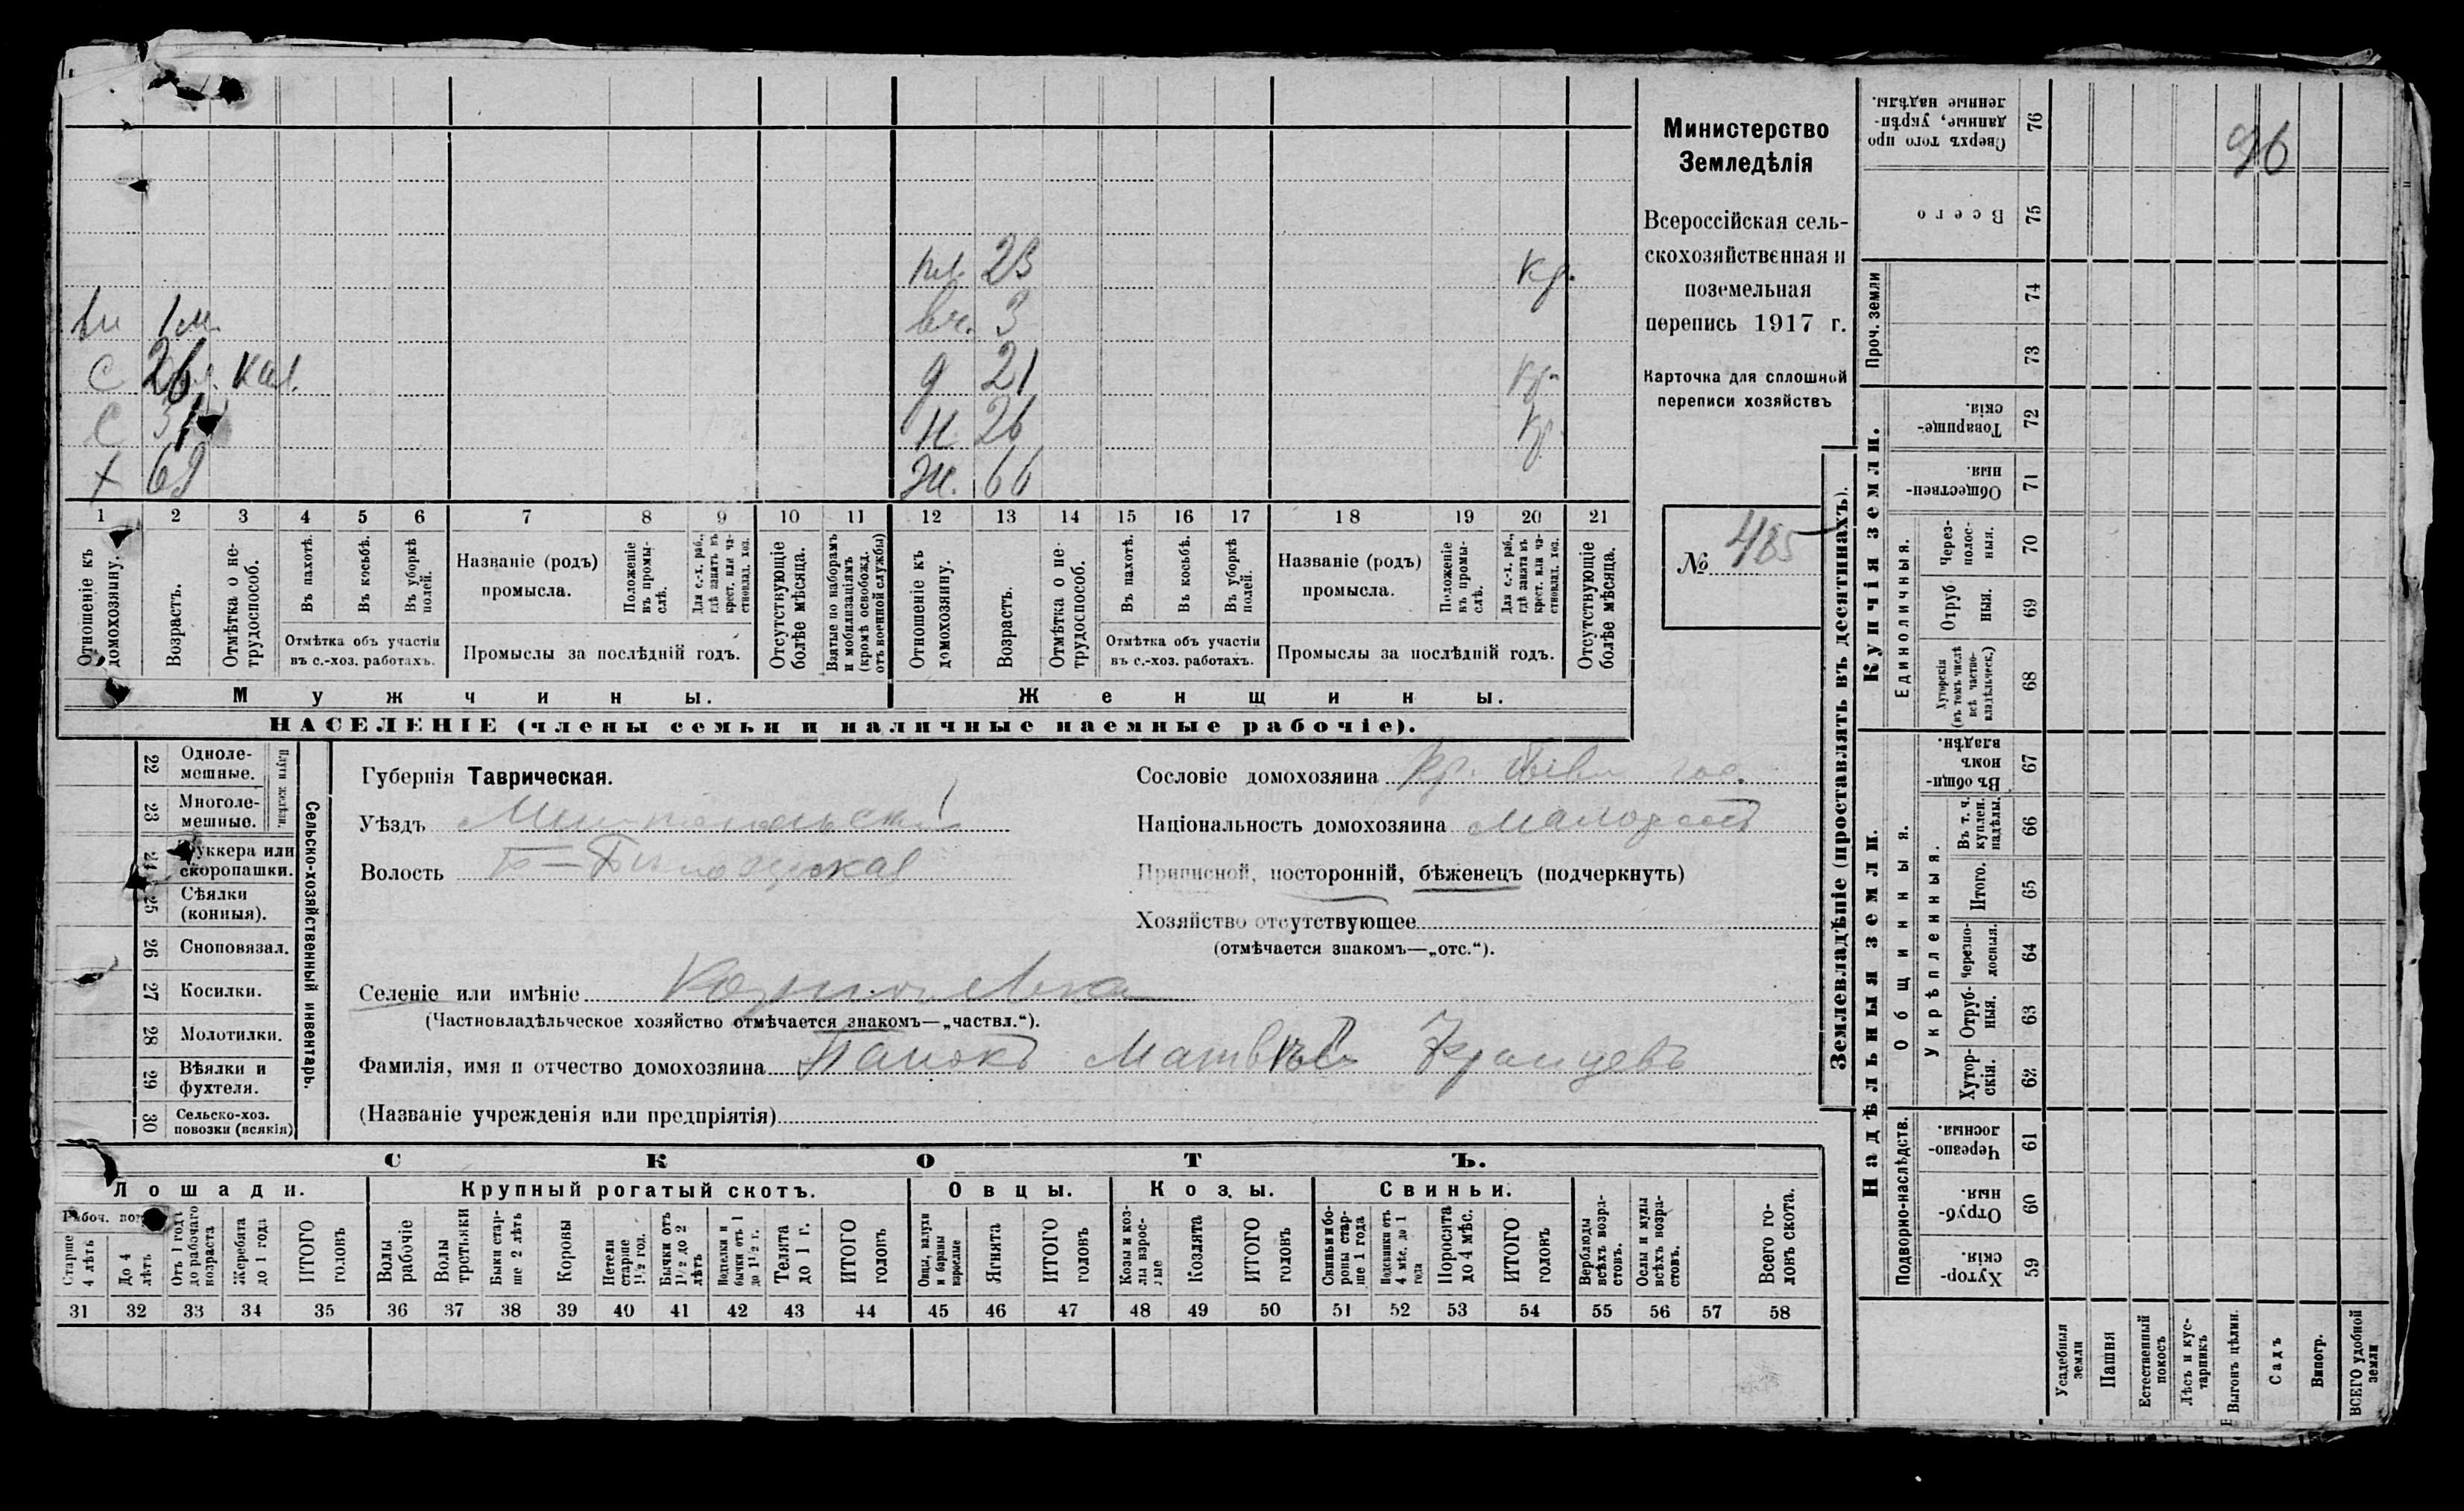 Министерство
Земледѣлія
Всероссійская сель-
скохозяйственная и
поземельная
перепись 1917 г.
Карточка для сплошной
переписи хозяйствъ
№ 485
96
пл. 23 кр.
вн 1 м. вч. 3
С 26 кал. д 21 кр.
С 31 н. 26 кр.
х 69 ж. 66
1 2 3 4 5 6 7 8 9 10 11 12 13 14 15 16 17 18 19 20 21
Отношеніе къ домохозяину.
Возрастъ.
Отмѣтка о не-трудоспособ.
Въ пахотѣ.
Въ косьбѣ.
Въ уборкѣ полей.
Отмѣтка объ участіи
въ с.-хоз. работахъ.
Названіе (родъ)
промысла.
Положеніе въ промы-слѣ.
Для с.-х. раб., гдѣ занятъ въ крест. или ча-стновлад. хоз.
Промыслы за послѣдній годъ.
Отсутствующіе болѣе мѣсяца.
Взятые по наборамъ и мобилизаціямъ (кромѣ освобожд. отъ военной службы)
Отношеніе къ домохозяину.
Возрастъ.
Отмѣтка о не-трудоспособ.
Въ пахотѣ.
Въ косьбѣ.
Въ уборкѣ полей.
Отмѣтка объ участіи
въ с.-хоз. работахъ.
Названіе (родъ)
промысла.
Положеніе въ промы-слѣ.
Для с.-х. раб., гдѣ занята въ крест. или ча-стновлад. хоз.
Промыслы за послѣдній годъ.
Отсутствующіе болѣе мѣсяца.
Мужчины.
Женщины.
НАСЕЛЕНІЕ (члены семьи и наличные наемные рабочіе).
Сельско-хозяйственный инвентарь.
22 Одноле-мешные.
23 Многоле-мешные.
24 скоропашки.
25 Сѣялки (конныя).
26 Сноповязал.
27 Косилки.
28 Молотилки.
29 Вѣялки и фухтеля.
30 Сельско-хоз. повозки (всякія)
Губернія Таврическая.
Уѣздъ Мелитопольскій
Волость Б-Бѣлозерская
Сословіе домохозяина кр.
Національность домохозяина малоросс
Приписной, посторонній, бѣженецъ (подчеркнуть)
Хозяйство отсутствующее
(отмѣчается знакомъ—„отс.“).
Селеніе или имѣніе
(Частновладѣльческое хозяйство отмѣчается знакомъ—„частвл.“).
Фамилія, имя и отчество домохозяина Панокъ Матвѣй
(Названіе учрежденія или предпріятія)
СКОТЪ.
Лошади.
Крупный рогатый скотъ.
Овцы.
Козы.
Свиньи.
Старше 4 лѣтъ
До 4 лѣтъ
Отъ 1 года до рабочаго возраста
Жеребята до 1 года
ИТОГО головъ
Волы рабочіе
Волы третьяки
Быки стар-ше 2 лѣтъ
Коровы
Нетели старше 1½ год.
Бычки отъ 1½ до 2 лѣтъ
Подтелки и бычки отъ 1 до 1½ г.
Телята до 1 г.
ИТОГО головъ
Овцы, валухи и бараны взрослые
Ягнята
ИТОГО головъ
Козы и коз-лы взрос-лые
Козлята
ИТОГО головъ
Свиньи и бо-ровы стар-ше 1 года
Подсвинки отъ 4 мѣс. до 1 года
Поросята до 4 мѣс.
ИТОГО головъ
Верблюды всѣхъ возра-стовъ.
Ослы и мулы всѣхъ возра-стовъ.
Всего го-ловъ скота.
31 32 33 34 35 36 37 38 39 40 41 42 43 44 45 46 47 48 49 50 51 52 53 54 55 56 57 58
Землевладѣніе (проставлять въ десятинахъ).
Надѣльныя земли.
Купчія земли.
Проч. земли
Подворно-наслѣдств.
Общинныя.
Укрѣпленныя.
Единоличныя.
59 Хутор-скія.
60 Отруб-ныя.
61 Черезпо-лосныя.
62 Хутор-скія.
63 Отруб-ныя.
64 Черезпо-лосныя.
65 Итого.
66 Въ т. ч. куплен. надѣлы.
67 Въ общи-номъ владѣн.
68 Хуторскія (въ томъ числѣ всѣ частно-владѣльческ.)
69 Отруб-ныя.
70 Через-полос-ныя.
71 Обществен-ныя.
72 Товарище-скія.
73
74
75 Всего
76 Сверхъ того про-данные, укрѣп-ленные надѣлы.
Усадебныя земли
Пашня
Естественный покосъ
Лѣсъ и кус-тарникъ
Выгонъ цѣлин.
Садъ
Виногр.
ВСЕГО удобной земли